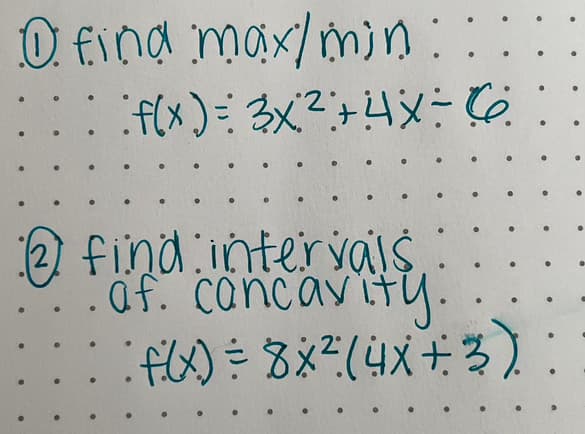 ① find max/min
f(x) = 3x² + 4x - 6
② find intervals
of concavity
f(x) = 8x²(4x + 3)